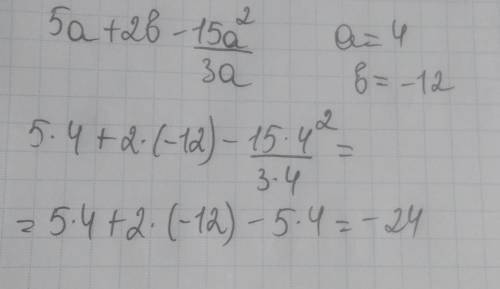 5a+2b - 15a²/3a a=4
b=-12
5·4+2·(-12) - 15·4²/3·4 =
= 5·4+2·(-12) - 5·4 = -24